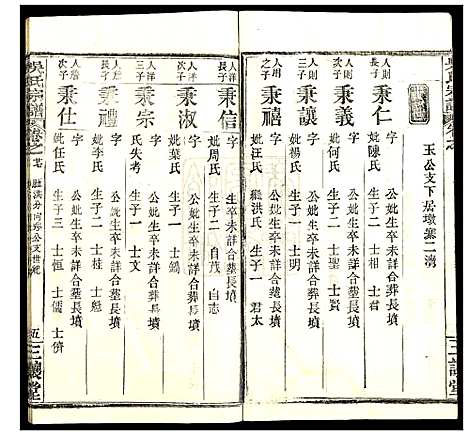 玉公支下居墩寨二灣
人則
秉仁 字
妣陳氏
公妣生卒未詳合葬長墳
生子二 士 士相
人則
秉義 字
妣何氏
公妣生卒未詳合葬長墳
生子二 士聖 士賢
人則
秉讓 字
妣楊氏
公妣生卒未詳合葬長墳
生子一 士明
人
之子
秉禧 字
妣汪氏 繼洪氏
公妣生卒未詳合葬長墳
生子一 君太
人洋
長子
秉信 字
妣周氏
公妣生卒未詳合葬長墳
生子二 自茂 自志
人洋
次子
秉淑 字
妣葉氏
公妣生卒未詳合葬長墳
生子一 士錫
人洋
三子
秉宗 字
氏失考
公妣生卒未詳合葬長墳
生子一 士文
人
長子
秉禮 字
妣李氏
公妣生卒未詳合葬長墳
生子二 士桂 士魁
人
次子
秉仕 字
妣任氏
公妣生卒未詳合葬長墳
生子三 士恒 士儒 士儕
吳氏宗譜 卷之
五 三讓堂
三讓堂